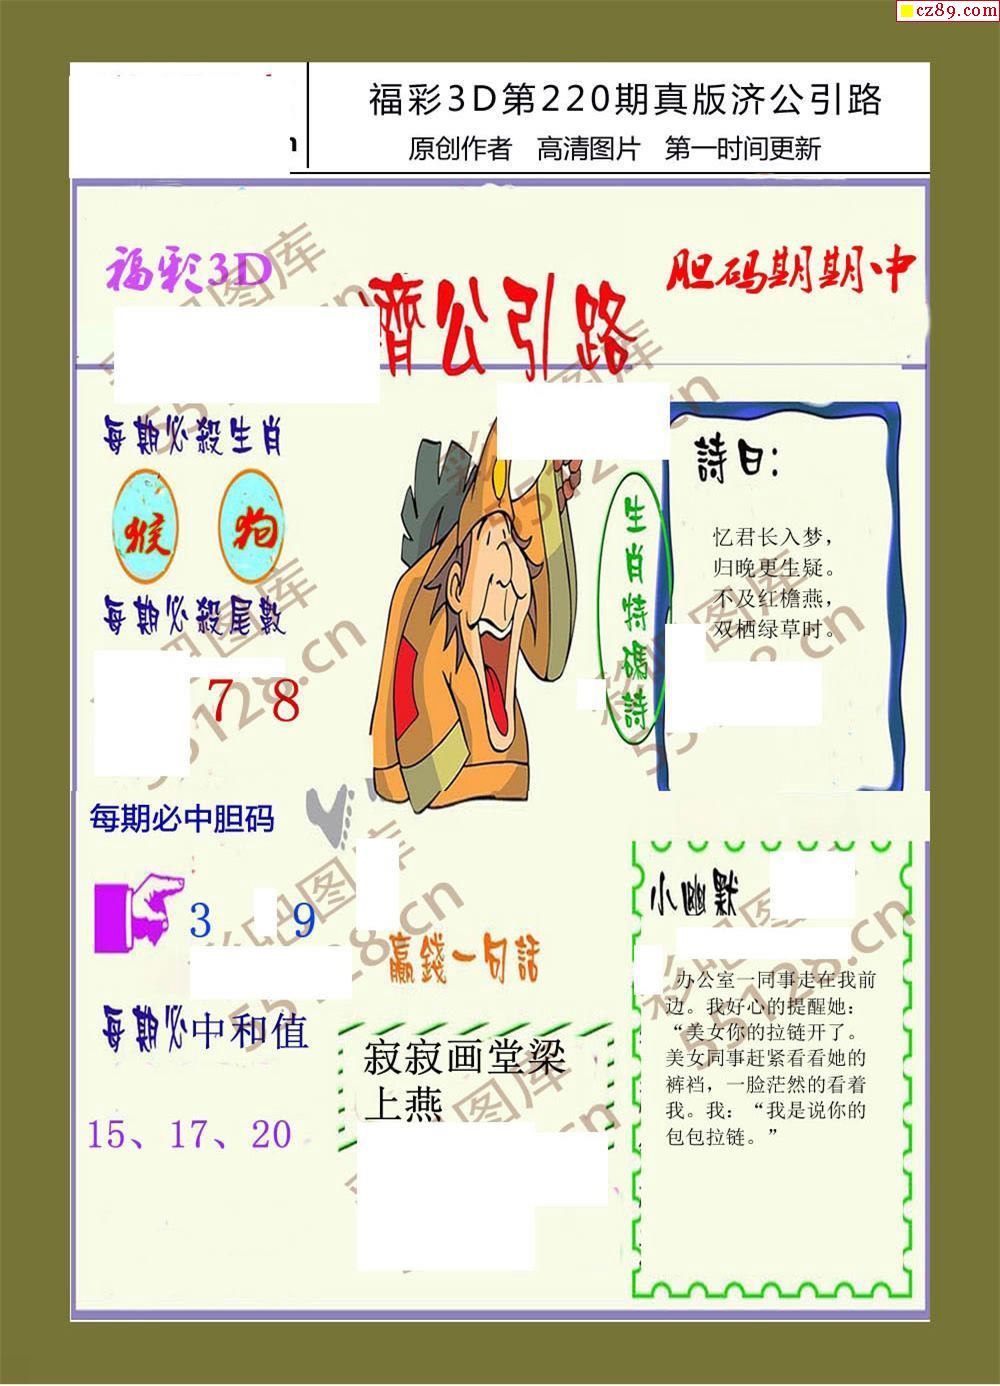 cz89.com
福彩3D第220期真版济公引路
原创作者 高清图片 第一时间更新
福彩3D
濟公引路
胆码期期中
每期必殺生肖
猴 狗
每期必殺尾數
7 8
每期必中胆码
3 9
每期必中和值
15、17、20
生肖特碼詩
詩曰:
忆君长入梦，
归晚更生疑。
不及红檐燕，
双栖绿草时。
赢錢一句話
寂寂画堂梁
上燕
小幽默
办公室一同事走在我前
边。我好心的提醒她：
“美女你的拉链开了。
美女同事赶紧看看她的
裤裆，一脸茫然的看着
我。我：“我是说你的
包包拉链。”
彩吧图库
55128.cn